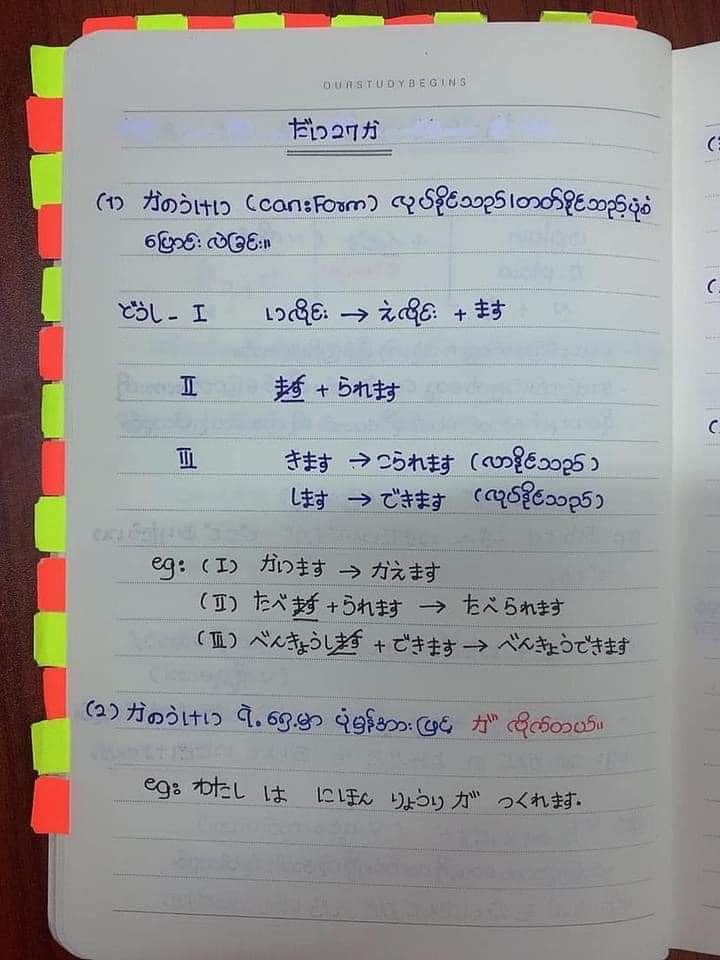 OURSTUDYBEGINS
だい27か
(1) かのうけい (can:Form) လုပ်နိုင်သည်/တတ်နိုင်သည့်ပုံစံ
ပြောင်းလဲခြင်း။
どうし - I いလိုင်း → えလိုင်း + ます
II ます + られます
III きます → こられます (လာနိုင်သည်)
します → できます (လုပ်နိုင်သည်)
eg: (I) かいます → かえます
(II) たべます + られます → たべられます
(III) べんきょうします + できます → べんきょうできます
(2) かのうけい ရဲ့ရှေ့မှာ ပုံမှန်အားဖြင့် が လိုက်တယ်။
eg: わたし は にほん りょうり が つくれます.